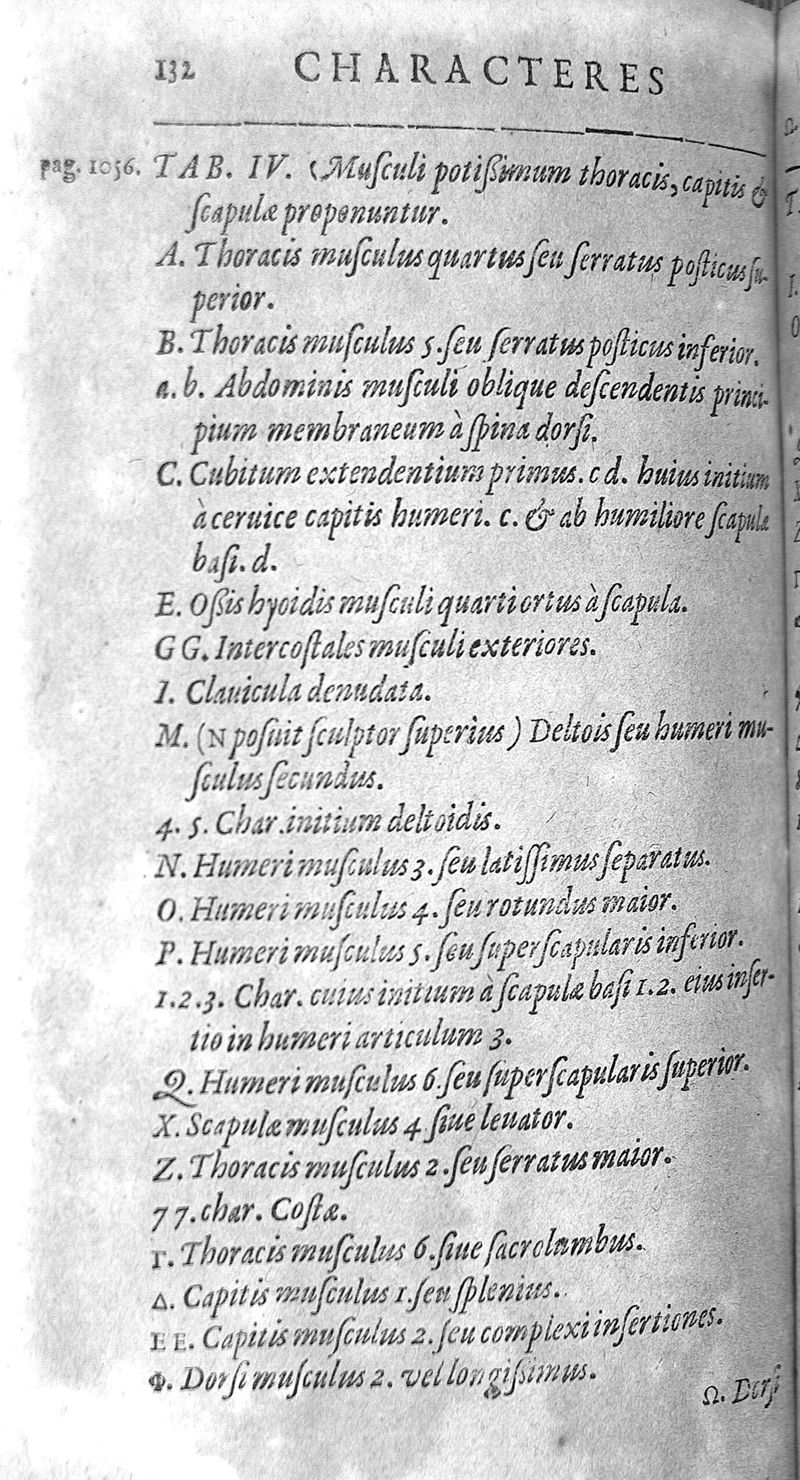 132 CHARACTERES
pag. 1056. TAB. IV. (Muſculi potißimum thoracis, capitis &
ſcapulæ proponuntur.
A. Thoracis muſculus quartus ſeu ſerratus poſticus ſu-
perior.
B. Thoracis muſculus 5. ſeu ſerratus poſticus inferior.
a. b. Abdominis muſculi oblique deſcendentis princi-
pium membraneum à ſpina dorſi.
C. Cubitum extendentium primus. c d. huius initium
à ceruice capitis humeri. c. & ab humiliore ſcapulæ
baſi. d.
E. Oßis hyoidis muſculi quarti ortus à ſcapula.
G G. Intercoſtales muſculi exteriores.
I. Clauicula denudata.
M. (N poſuit ſculptor ſuperius) Deltois ſeu humeri mu-
ſculus ſecundus.
4. 5. Char. initium deltoidis.
N. Humeri muſculus 3. ſeu latiſſimus ſeparatus.
O. Humeri muſculus 4. ſeu rotundus maior.
P. Humeri muſculus 5. ſeu ſuperſcapularis inferior.
1. 2. 3. Char. cuius initium à ſcapulæ baſi 1. 2. eius inſer-
tio in humeri articulum 3.
Q. Humeri muſculus 6. ſeu ſuperſcapularis ſuperior.
X. Scapulæ muſculus 4 ſiue leuator.
Z. Thoracis muſculus 2. ſeu ſerratus maior.
7 7. char. Coſtæ.
Γ. Thoracis muſculus 6. ſiue ſacrolumbus.
Δ. Capitis muſculus 1. ſeu ſplenius.
E E. Capitis muſculus 2. ſeu complexi inſertiones.
Φ. Dorſi muſculus 2. vel longißimus.
Ω. Dorſi